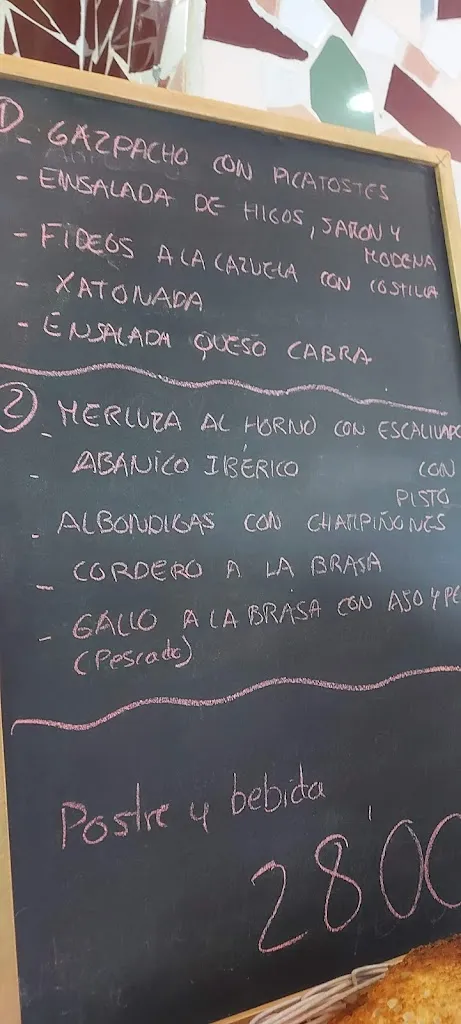 1
- GAZPACHO CON PICATOSTES
- ENSALADA DE HIGOS, JAMON Y
MODENA
- FIDEOS A LA CAZUELA CON COSTILLA
- XATONADA
- ENSALADA QUESO CABRA
2
- MERLUZA AL HORNO CON
- ABANICO IBÉRICO CON
PISTO
- ALBONDIGAS CON CHAMPIÑONES
- CORDERO A LA BRASA
- GALLO A LA BRASA CON AJO Y PE
(Pescado)
Postre y bebida
28'00